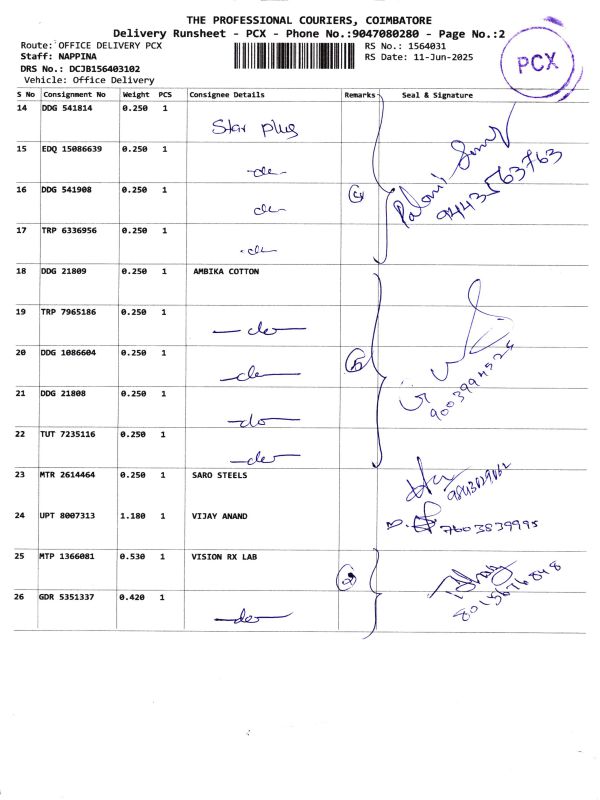 THE PROFESSIONAL COURIERS, COIMBATORE
Delivery Runsheet - PCX - Phone No.:9047080280 - Page No.:2
Route: OFFICE DELIVERY PCX RS No.: 1564031
Staff: NAPPINA RS Date: 11-Jun-2025
DRS No.: DCJB156403102
Vehicle: Office Delivery
PCX
S No Consignment No Weight PCS Consignee Details Remarks Seal & Signature
14 DDG 541814 0.250 1 Star plus
15 EDQ 15086639 0.250 1 -do-
16 DDG 541908 0.250 1 do- 4
17 TRP 6336956 0.250 1 -do-
9443563763
18 DDG 21809 0.250 1 AMBIKA COTTON
19 TRP 7965186 0.250 1 -do-
20 DDG 1086604 0.250 1 -do- 5
21 DDG 21808 0.250 1 -do-
22 TUT 7235116 0.250 1 -do-
23 MTR 2614464 0.250 1 SARO STEELS
24 UPT 8007313 1.180 1 VIJAY ANAND 7603839995
25 MTP 1366081 0.530 1 VISION RX LAB 2
26 GDR 5351337 0.420 1 -do-